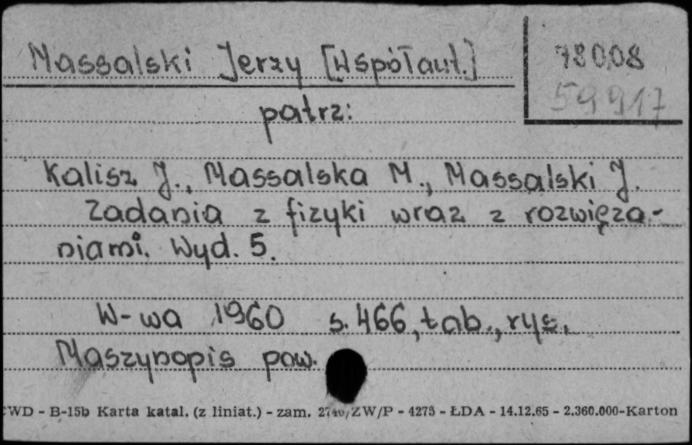 Massalski Jerzy [Współaut.]
78008
59917
patrz:
Kalisz J., Massalska M., Massalski J.
Zadania z fizyki wraz z rozwięza-
niami. Wyd. 5.
W-wa 1960 s. 466, tab., rys.
Maszynopis pow.
CWD - B-15b Karta katal. (z liniat.) - zam. ZW/P - 4275 - ŁDA - 14.12.65 - 2.360.000-Karton